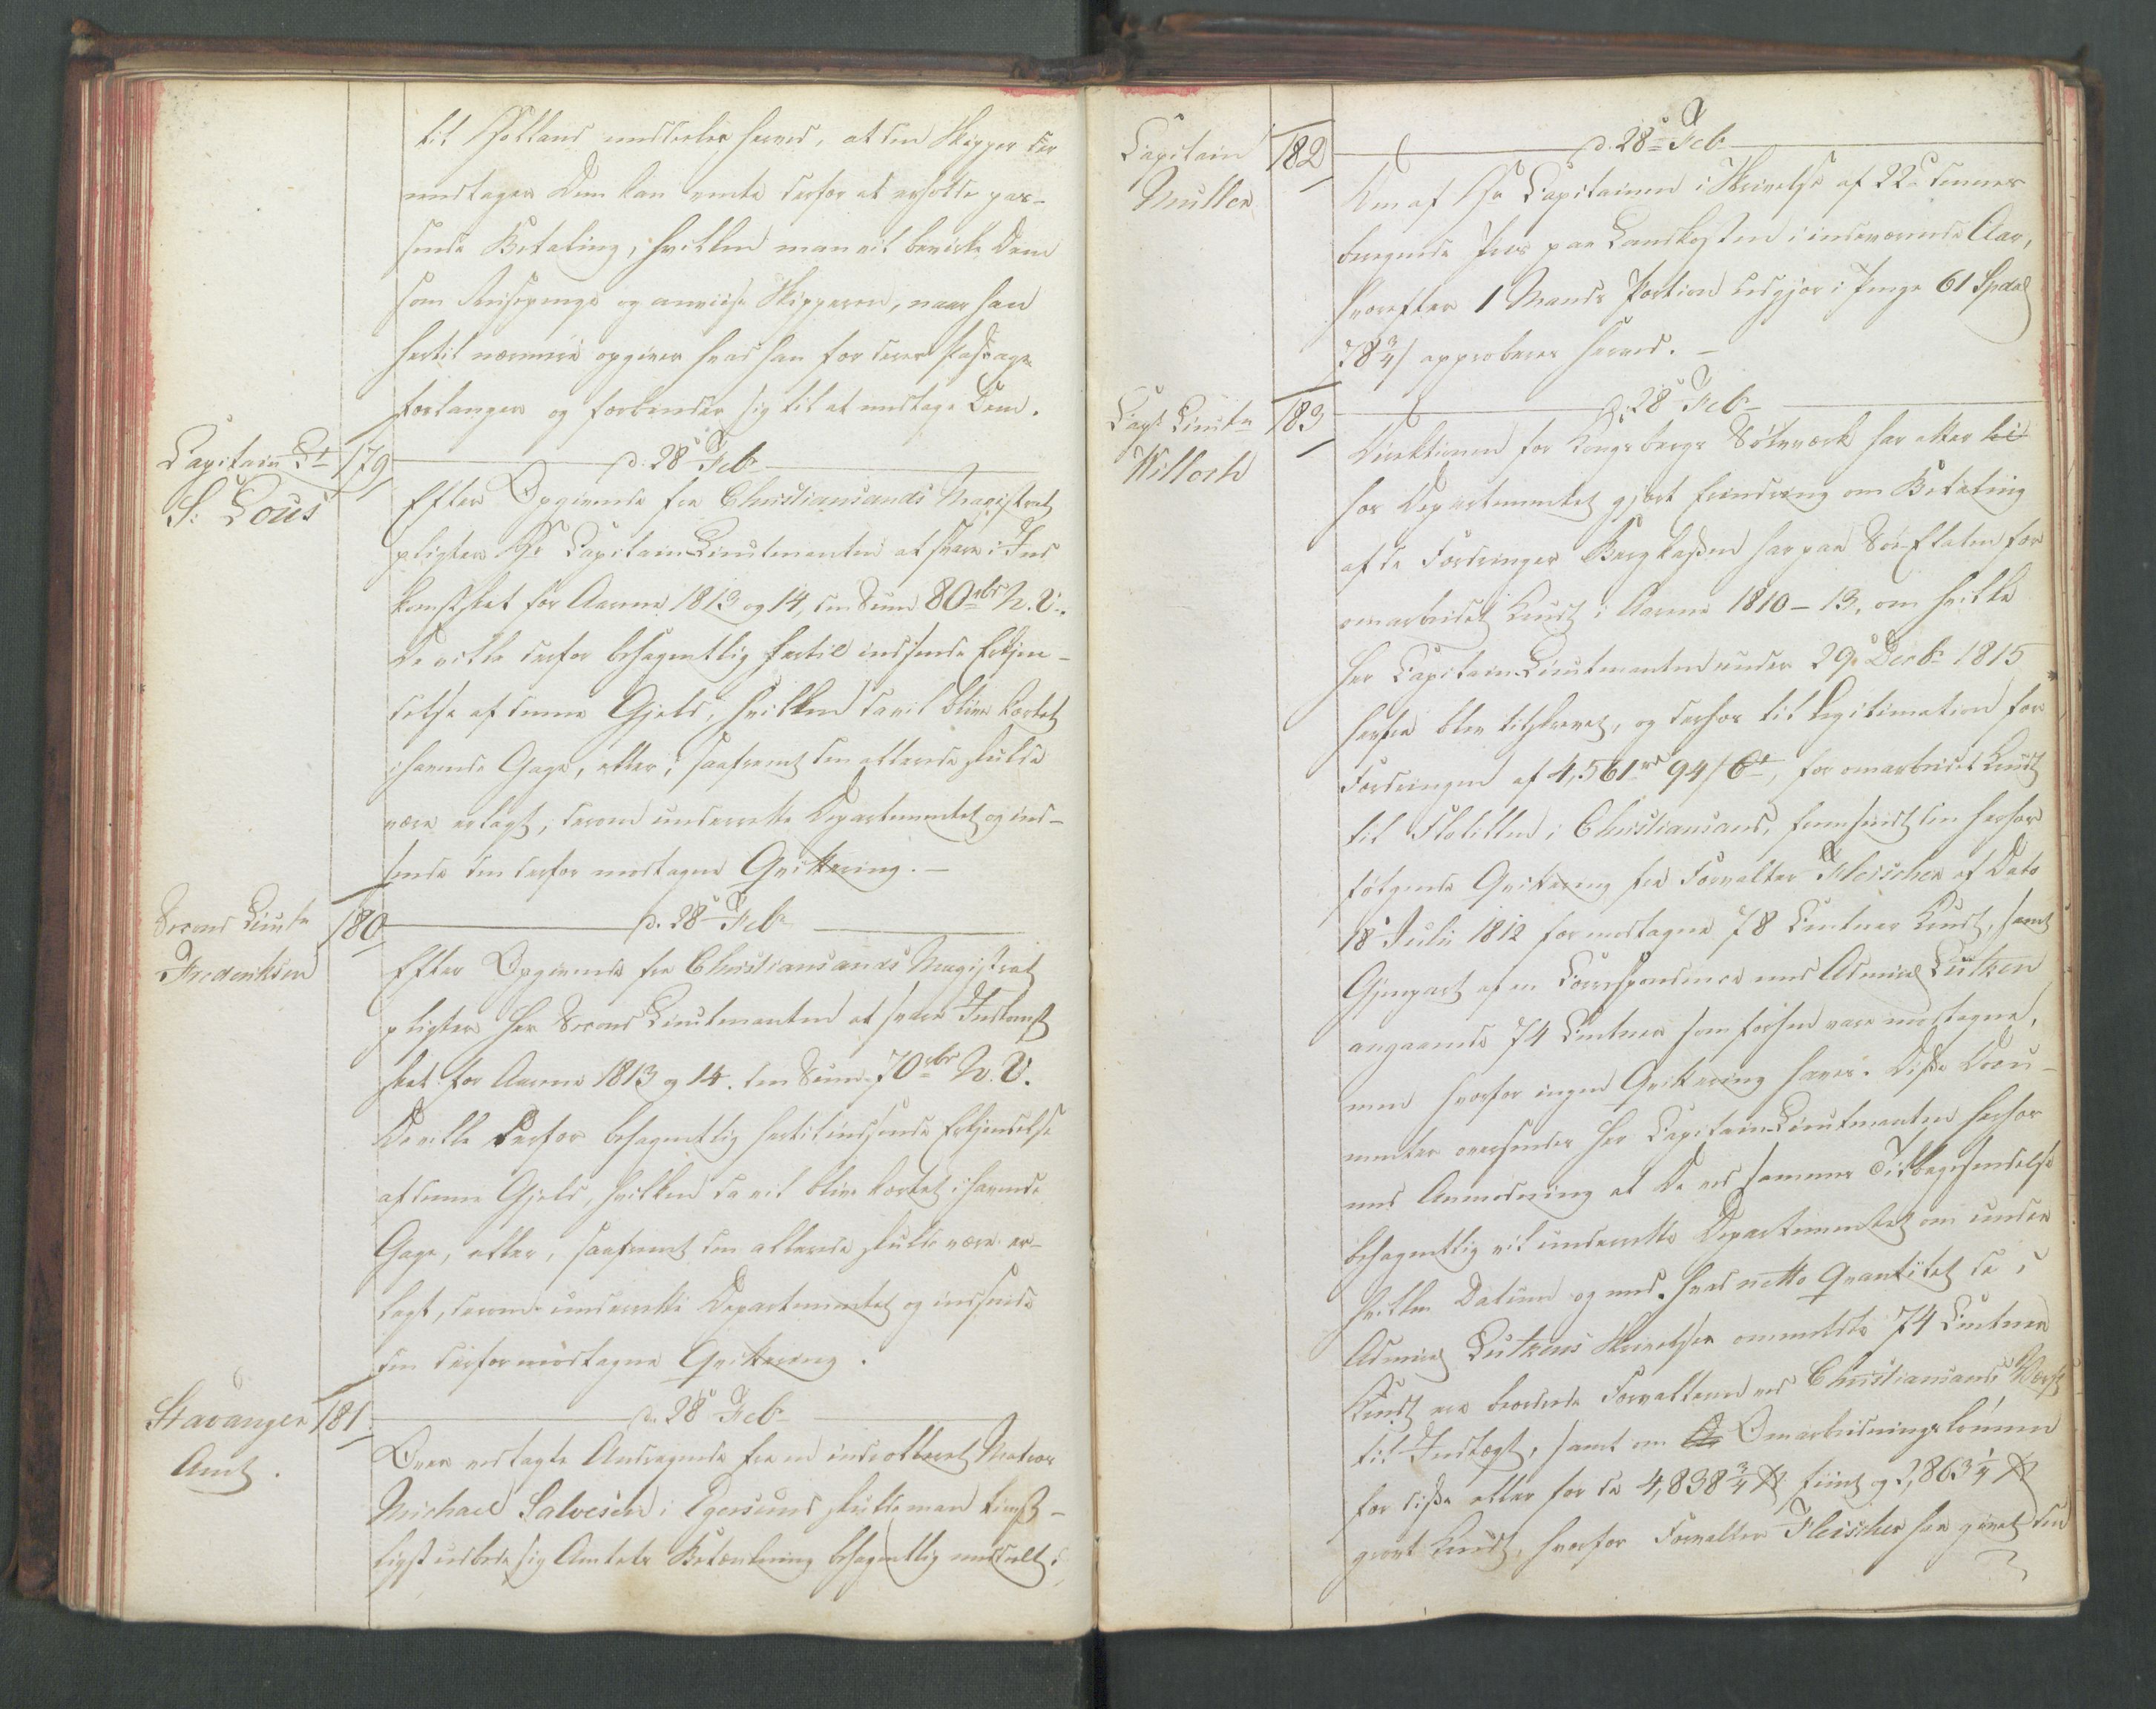 til Holland meddeeles herved, at den Skipper der
modtager Dem kan vente derfor at erholde pas-
sende Betaling, hvilken man vil bevirke Dem
som Reisepenge og anviise Skipperen, naar han
hertil nærmere opgiver hvad han for deres Passage
forlanger og forbinder sig til at modtage Dem.
Capitain Lt
S: Lous
179
d. 28de Feb
Efter Opgivende fra Christiansands Magistrat
pligter Hr Capitain Lieutenanten at svare i Ind
komstskat for Aarene 1813 og 14, den Sum 80 rbd N. V.
De ville derfor behageligst hertil indsende Erkjen-
delse af denne Gjeld, hvilken da vil blive kortet
i havende Gage, eller, saafremt den allerede skulde
være erlagt, derom underrette Departementet og ind-
sende den derfor modtagne Qvittering. -
Second Lieutn
Frederiksen
180
d. 28de Feb
Efter Opgivende fra Christiansands Magistrat
pligter Her Second Lieutenanten at svare Indkomst
skat for Aarene 1813 og 14. den Sum 70 rbd N. V.
De ville derfor behageligst hertil indsende Erkjendelse
af denne Gjeld, hvilken da vil blive kortet i havende
Gage, eller, saafremt den allerede skulde være er-
lagt, derom underrette Departementet og indsende
den derfor modtagne Qvittering.
Stavanger
Amt.
181
d. 28de Feb
Over vedlagte Andragende fra en indrolleret Matros
Michael Salvesen i Egersund skulde man tienst-
ligst udbede sig Amtets Betænkning behageligst meddeelt.
Capitain
Müller
182
d. 28de Feb
Den af Hr Capitainen i Skrivelse af 22de dennes
beregnede Priis paa Landkosten i indeværende Aar,
hvorefter 1 Mands Portion udgjør i Penge 61 Spdal
78 3/4 s approberes herved. -
Capt. Lieutn
Willoch
183
d. 28de Feb
Direktionen for Kongsbergs Sølvværk har atter
hos Departementet gjort Erindring om Betaling
af de Fordringer Bergkassen har paa Søe-Etaten for
omarbeidet Krudt i Aarene 1810 - 13, om hvilke
Her Capitain Lieutenanten under 29 Decbr 1815
herfra blev tilskrevet, og derhos til Legitimation for
Fordringen af 4,561 rd 94 s, for omarbeidet Krudt
til Flotillen i Christiansand, fremsendt den herhos
følgende Qvittering fra Forvalter Fleischer af Dato
18 Julii 1812 for modtagne 78 Centner Krudt, samt
Gjenpart af en Correspondence med Admiral Lütken
angaaende 74 Centner som forhen vare modtagne,
men hvorfor ingen Qvittering haves. Disse Docu-
menter oversendes Her Capitain-Lieutenanten herhos
med Anmodning at De ved sammes Tilbagesendelse
behageligst vil underrette Departementet om under
hvilken Datum og med hvad netto Qvantitet de i
Admiral Lütkens Skrivelser ommeldte 74 Centner
Krudt ere beordrede Forvalteren ved Christiansands Værft
til Indtægt, samt om Omarbeidningslønnen
for disse eller for de 4,838 3/4 ℔ fiint og 2,863 1/4 ℔
grovt Krudt, hvorfor Forvalter Fleischer har givet den